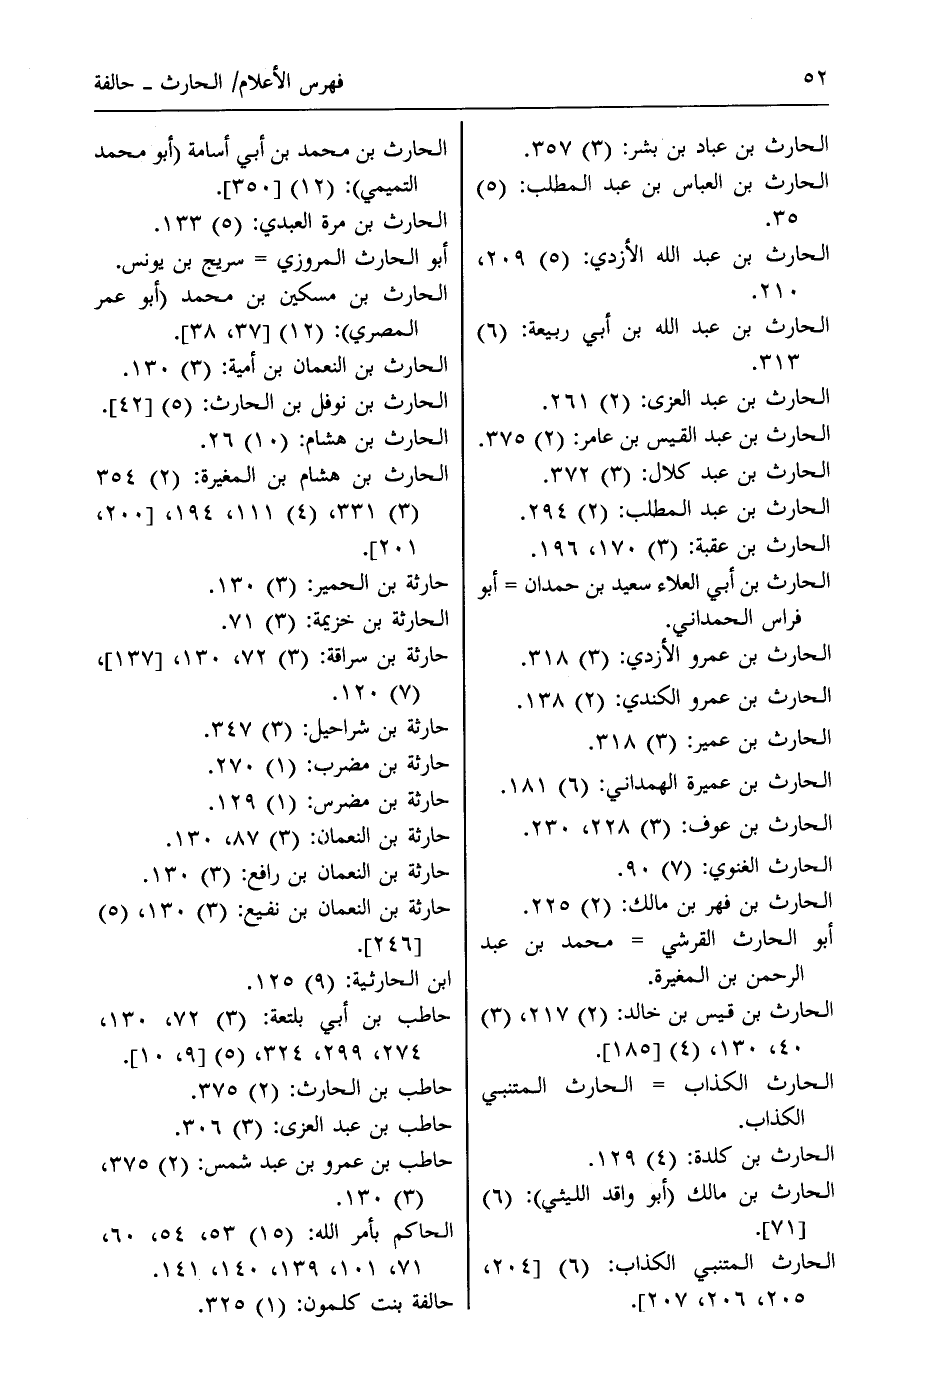 ٥٢
فهرس الأعلام/ الحارث ـ حالفة
الحارث بن عباد بن بشر: (٣) ٣٥٧.
الحارث بن العباس بن عبد المطلب: (٥)
٣٥.
الحارث بن عبد الله الأزدي: (٥) ٢٠٩،
٢١٠.
الحارث بن عبد الله بن أبي ربيعة: (٦)
٣١٣.
الحارث بن عبد العزى: (٢) ٢٦١.
الحارث بن عبد القيس بن عامر: (٢) ٣٧٥.
الحارث بن عبد كلال: (٣) ٣٧٢.
الحارث بن عبد المطلب: (٢) ٢٩٤.
الحارث بن عقبة: (٣) ١٧٠، ١٩٦.
الحارث بن أبي العلاء سعيد بن حمدان = أبو
فراس الحمداني.
الحارث بن عمرو الأزدي: (٣) ٣١٨.
الحارث بن عمرو الكندي: (٢) ١٣٨.
الحارث بن عمير: (٣) ٣١٨.
الحارث بن عميرة الهمداني: (٦) ١٨١.
الحارث بن عوف: (٣) ٢٢٨، ٢٣٠.
الحارث الغنوي: (٧) ٩٠.
الحارث بن فهر بن مالك: (٢) ٢٢٥.
أبو الحارث القرشي = محمد بن عبد
الرحمن بن المغيرة.
الحارث بن قيس بن خالد: (٢) ٢١٧، (٣)
٤٠، ١٣٠، (٤) [١٨٥].
الحارث الكذاب = الحارث المتنبي
الكذاب.
الحارث بن كلدة: (٤) ١٢٩.
الحارث بن مالك (أبو واقد الليثي): (٦)
[٧١].
الحارث المتنبي الكذاب: (٦) [٢٠٤،
٢٠٥، ٢٠٦، ٢٠٧].
الحارث بن محمد بن أبي أسامة (أبو محمد
التميمي): (١٢) [٣٥٠].
الحارث بن مرة العبدي: (٥) ١٣٣.
أبو الحارث المروزي = سريج بن يونس.
الحارث بن مسكين بن محمد (أبو عمر
المصري): (١٢) [٣٧، ٣٨].
الحارث بن النعمان بن أمية: (٣) ١٣٠.
الحارث بن نوفل بن الحارث: (٥) [٤٢].
الحارث بن هشام: (١٠) ٢٦.
الحارث بن هشام بن المغيرة: (٢) ٣٥٤
(٣) ٣٣١، (٤) ١١١، ١٩٤، [٢٠٠،
٢٠١].
حارثة بن الحمير: (٣) ١٣٠.
الحارثة بن خزيمة: (٣) ٧١.
حارثة بن سراقة: (٣) ٧٢، ١٣٠، [١٣٧]،
(٧) ١٢٠.
حارثة بن شراحيل: (٣) ٣٤٧.
حارثة بن مضرب: (١) ٢٧٠.
حارثة بن مضرس: (١) ١٢٩.
حارثة بن النعمان: (٣) ٨٧، ١٣٠.
حارثة بن النعمان بن رافع: (٣) ١٣٠.
حارثة بن النعمان بن نفيع: (٣) ١٣٠، (٥)
[٢٤٦].
ابن الحارثية: (٩) ١٢٥.
حاطب بن أبي بلتعة: (٣) ٧٢، ١٣٠،
٢٧٤، ٢٩٩، ٣٢٤، (٥) [٩، ١٠].
حاطب بن الحارث: (٢) ٣٧٥.
حاطب بن عبد العزى: (٣) ٣٠٦.
حاطب بن عمرو بن عبد شمس: (٢) ٣٧٥،
(٣) ١٣٠.
الحاكم بأمر الله: (١٥) ٥٣، ٥٤، ٦٠،
٧١، ١٠١، ١٣٩، ١٤٠، ١٤١.
حالفة بنت كلمون: (١) ٣٢٥.